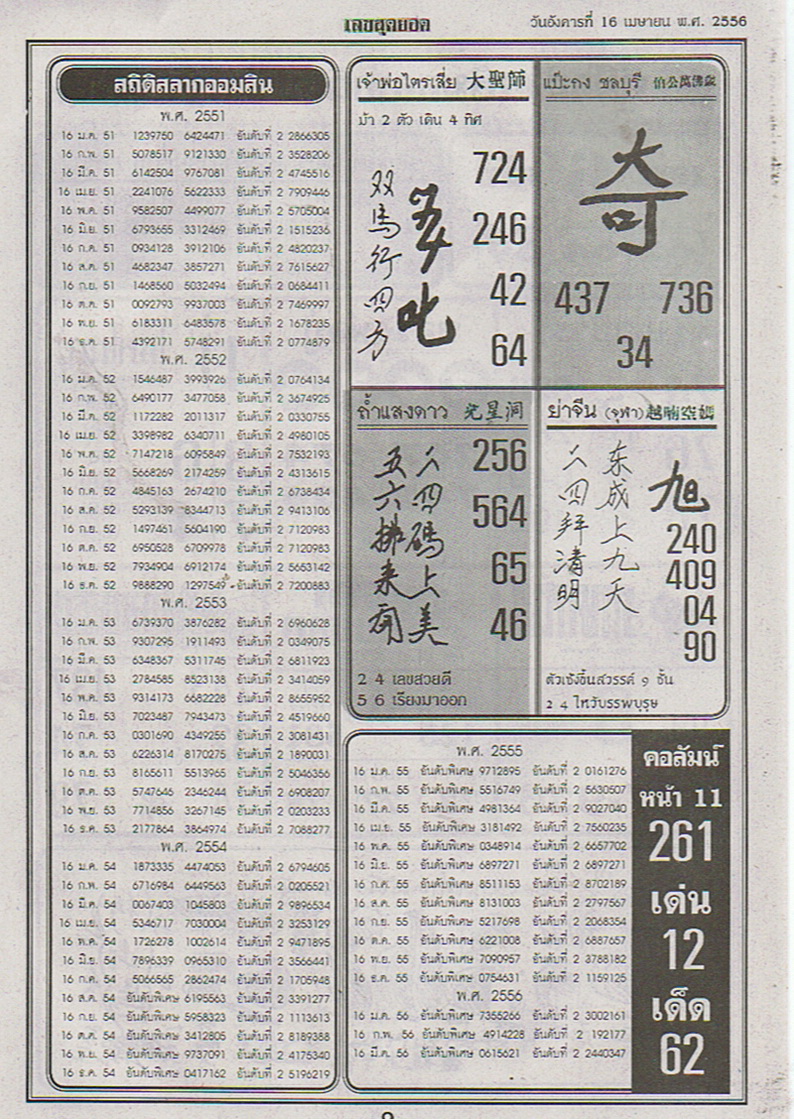 เลขสุดยอด
วันอังคารที่ 16 เมษายน พ.ศ. 2556
สถิติสลากออมสิน
พ.ศ. 2551
16 ม.ค. 51 1239750 6424471 อันดับที่ 2 2866305
16 ก.พ. 51 5078517 9121330 อันดับที่ 2 3528206
16 มี.ค. 51 6142504 9767081 อันดับที่ 2 4745516
16 เม.ย. 51 2241076 5622333 อันดับที่ 2 7909446
16 พ.ค. 51 9582507 4499077 อันดับที่ 2 5705004
16 มิ.ย. 51 6793655 3312469 อันดับที่ 2 1515236
16 ก.ค. 51 0934128 3912106 อันดับที่ 2 4820237
16 ส.ค. 51 4682347 3857271 อันดับที่ 2 7615627
16 ก.ย. 51 1468560 5032494 อันดับที่ 2 0684411
16 ต.ค. 51 0092793 9937003 อันดับที่ 2 7469997
16 พ.ย. 51 6183311 6483578 อันดับที่ 2 1678235
16 ธ.ค. 51 4392171 5748291 อันดับที่ 2 0774879
พ.ศ. 2552
16 ม.ค. 52 1546487 3993926 อันดับที่ 2 0764134
16 ก.พ. 52 6490177 3477058 อันดับที่ 2 3674925
16 มี.ค. 52 1172282 2011317 อันดับที่ 2 0330755
16 เม.ย. 52 3398982 6340711 อันดับที่ 2 4980105
16 พ.ค. 52 7147218 6095849 อันดับที่ 2 7532193
16 มิ.ย. 52 5668269 2174259 อันดับที่ 2 4313615
16 ก.ค. 52 4845163 2674210 อันดับที่ 2 6738434
16 ส.ค. 52 5293139 8344713 อันดับที่ 2 9413106
16 ก.ย. 52 1497461 5604190 อันดับที่ 2 7120983
16 ต.ค. 52 6950528 6709978 อันดับที่ 2 7120983
16 พ.ย. 52 7934904 6912174 อันดับที่ 2 5653142
16 ธ.ค. 52 9888290 1297549 อันดับที่ 2 7200883
พ.ศ. 2553
16 ม.ค. 53 6739370 3876282 อันดับที่ 2 6960628
16 ก.พ. 53 9307295 1911493 อันดับที่ 2 0349075
16 มี.ค. 53 6348367 5311745 อันดับที่ 2 6811923
16 เม.ย. 53 2784585 8523138 อันดับที่ 2 3414059
16 พ.ค. 53 9314173 6682228 อันดับที่ 2 8655952
16 มิ.ย. 53 7023487 7943473 อันดับที่ 2 4519660
16 ก.ค. 53 0301690 4349255 อันดับที่ 2 3081431
16 ส.ค. 53 6226314 8170275 อันดับที่ 2 1890031
16 ก.ย. 53 8165611 5513965 อันดับที่ 2 5046356
16 ต.ค. 53 5747646 2346244 อันดับที่ 2 6908207
16 พ.ย. 53 7714856 3267145 อันดับที่ 2 0203233
16 ธ.ค. 53 2177864 3864974 อันดับที่ 2 7088277
พ.ศ. 2554
16 ม.ค. 54 1873335 4474053 อันดับที่ 2 6794605
16 ก.พ. 54 6716984 6449563 อันดับที่ 2 0205521
16 มี.ค. 54 0067403 1045803 อันดับที่ 2 9896534
16 เม.ย. 54 5346717 7030004 อันดับที่ 2 3253129
16 พ.ค. 54 1726278 1002614 อันดับที่ 2 9471895
16 มิ.ย. 54 7896339 0965310 อันดับที่ 2 3566441
16 ก.ค. 54 5066565 2862474 อันดับที่ 2 1705948
16 ส.ค. 54 อันดับพิเศษ 6195563 อันดับที่ 2 3391277
16 ก.ย. 54 อันดับพิเศษ 5958323 อันดับที่ 2 1113613
16 ต.ค. 54 อันดับพิเศษ 3412805 อันดับที่ 2 8189388
16 พ.ย. 54 อันดับพิเศษ 9737091 อันดับที่ 2 4175340
16 ธ.ค. 54 อันดับพิเศษ 0417162 อันดับที่ 2 5196219
เจ้าพ่อไตรเสี่ย 大聖師
ม้า 2 ตัว เดิน 4 ทิศ
双馬行四方
724
246
42
64
แป๊ะกง ชลบุรี
奇
437 736
34
ถ้ำแสงดาว 光星洞
二四碼上美
五六排来
256
564
65
46
2 4 เลขสวยดี
5 6 เรียงมาออก
ย่าจีน (จุฬา)
旭
东成上九天
二四拜清明
240
409
04
90
ตัวเซ้งขึ้นสวรรค์ 9 ชั้น
2 4 ไหว้บรรพบุรุษ
พ.ศ. 2555
16 ม.ค. 55 อันดับพิเศษ 9712895 อันดับที่ 2 0161276
16 ก.พ. 55 อันดับพิเศษ 5516749 อันดับที่ 2 5630507
16 มี.ค. 55 อันดับพิเศษ 4981364 อันดับที่ 2 9027040
16 เม.ย. 55 อันดับพิเศษ 3181492 อันดับที่ 2 7560235
16 พ.ค. 55 อันดับพิเศษ 0348914 อันดับที่ 2 6657702
16 มิ.ย. 55 อันดับพิเศษ 6897271 อันดับที่ 2 6897271
16 ก.ค. 55 อันดับพิเศษ 8511153 อันดับที่ 2 8702189
16 ส.ค. 55 อันดับพิเศษ 8131003 อันดับที่ 2 2797567
16 ก.ย. 55 อันดับพิเศษ 5217698 อันดับที่ 2 2068354
16 ต.ค. 55 อันดับพิเศษ 6221008 อันดับที่ 2 6887657
16 พ.ย. 55 อันดับพิเศษ 7090957 อันดับที่ 2 3788182
16 ธ.ค. 55 อันดับพิเศษ 0754631 อันดับที่ 2 1159125
พ.ศ. 2556
16 ม.ค. 56 อันดับพิเศษ 7355266 อันดับที่ 2 3002161
16 ก.พ. 56 อันดับพิเศษ 4914228 อันดับที่ 2 192177
16 มี.ค. 56 อันดับพิเศษ 0615621 อันดับที่ 2 2440347
คอลัมน์
หน้า 11
261
เด่น
12
เด็ด
62